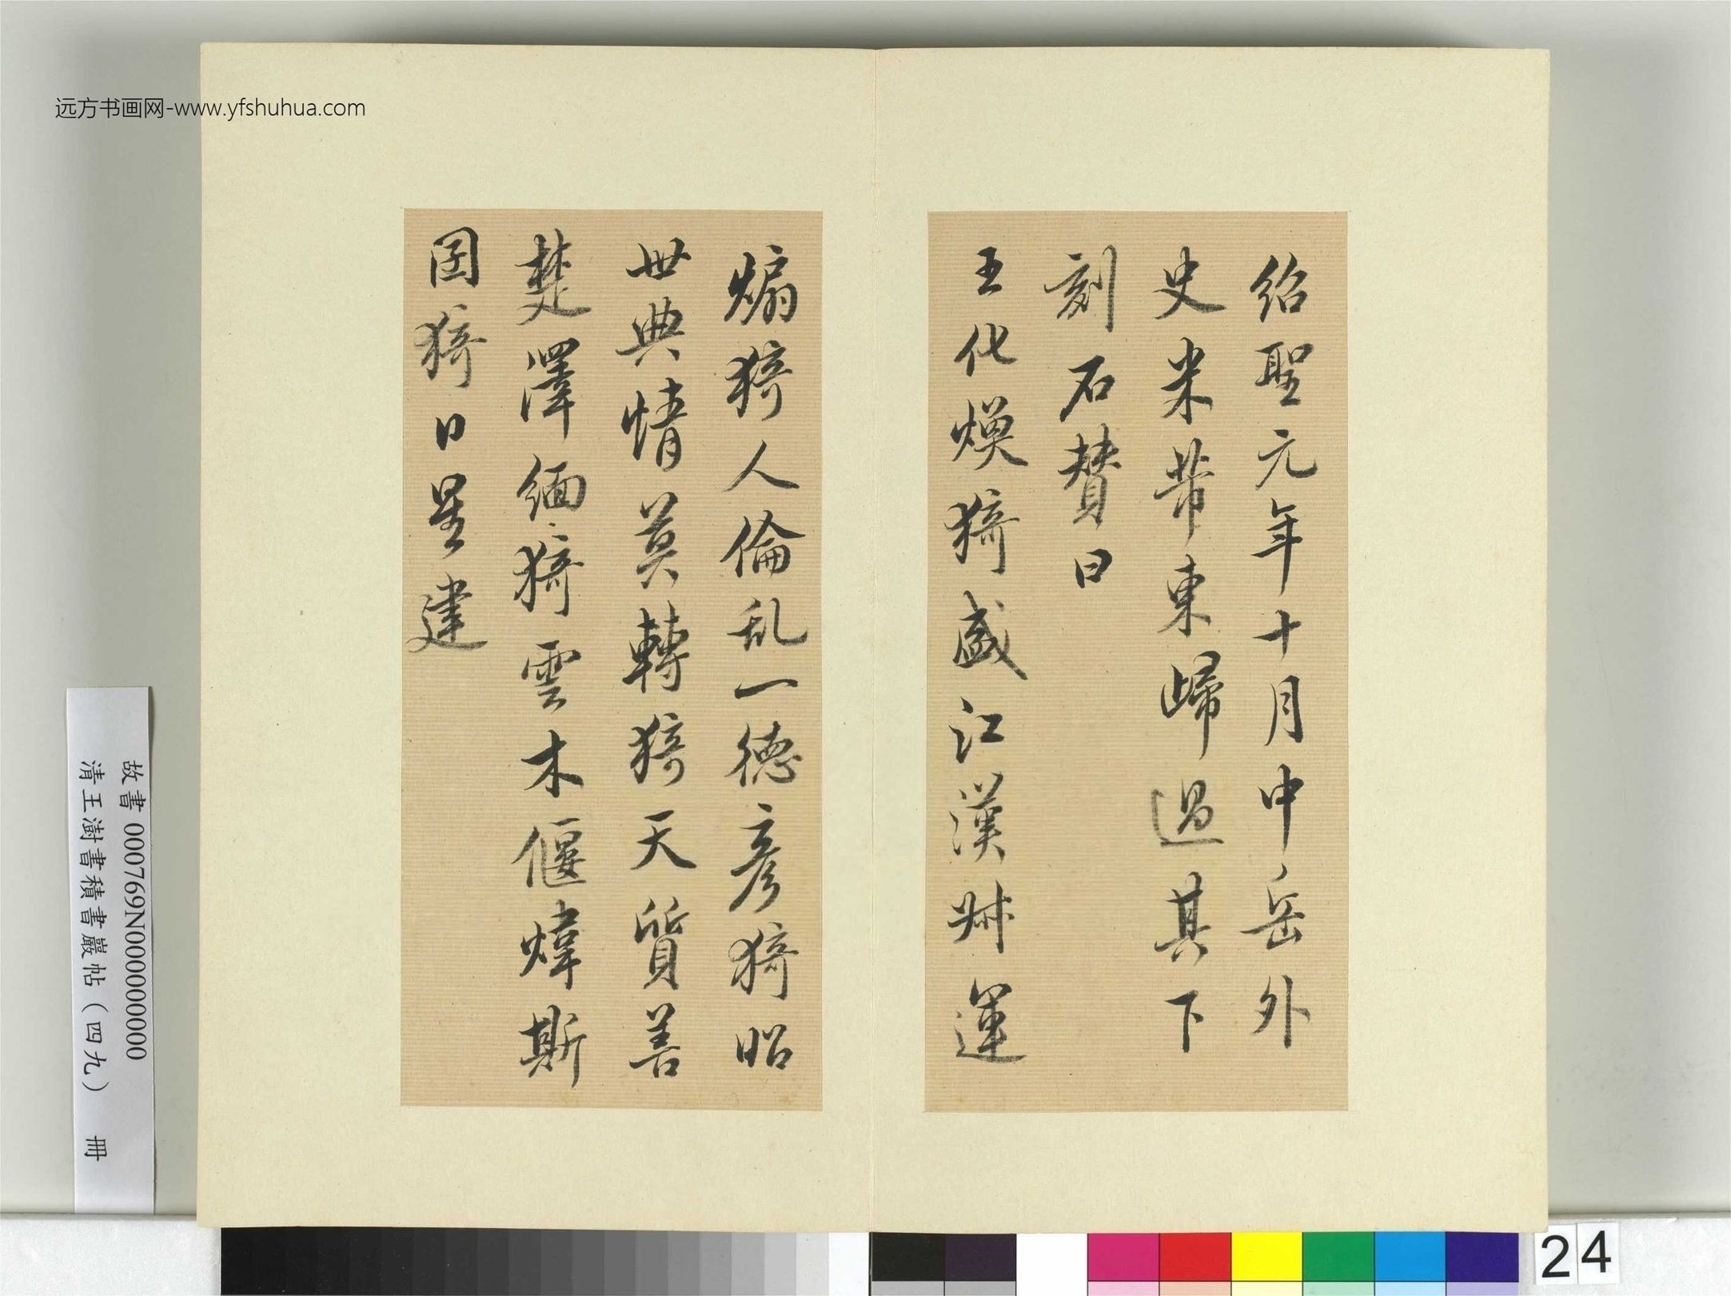 远方书画网-www.yfshuhua.com
紹聖元年十月中岳外
史米芾東歸過其下
刻石贊曰
王化煥猗盛江漢
運
煽猗人倫乱一德彥猗昭
世典情莫轉猗天質善
楚澤緬猗雲木偃煒斯
囹猗日星建
故書 000769N000000000
清王澍書積書巖帖（四九） 冊
24